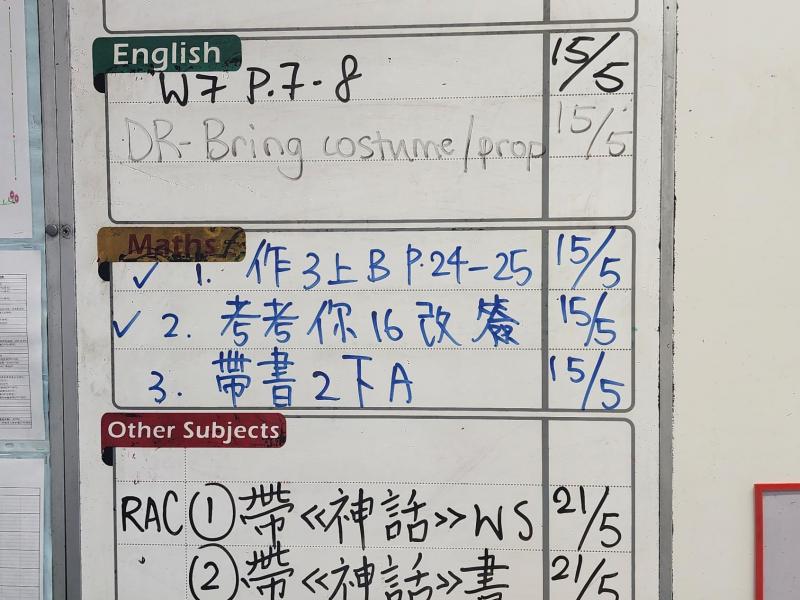 English
W7 P.7-8 15/5
DR-Bring costume/prop 15/5
Maths
✓ 1. 作3上B P.24-25 15/5
✓ 2. 考考你16改簽 15/5
3. 帶書2下A 15/5
Other Subjects
RAC ① 帶《神話》WS 21/5
② 帶《神話》書 21/5